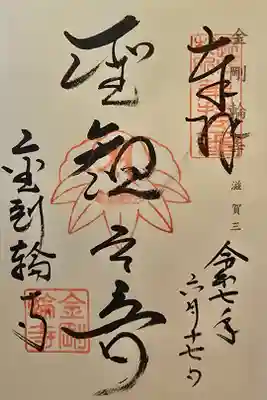 奉拝
金剛輪寺
滋賀三
令和七年
六月十七日
聖観世音
金剛輪寺
金剛
輪寺